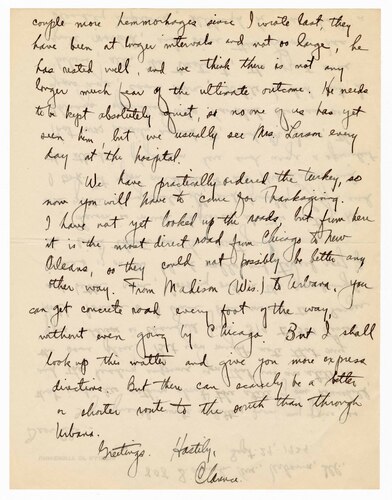 couple more hemmorhages since I wrote last, they
have been at longer intervals and not so large, he
has rested well, and we think there is not any
longer much fear of the ultimate outcome. He needs
to be kept absolutely quiet, so no one of us has yet
seen him, but we usually see Mrs. Larson every
day at the hospital.
We have practically ordered the turkey, so
now you will have to come for Thanksgiving.
I have not yet looked up the roads, but from here
it is the most direct road from Chicago to New
Orleans, so they could not possibly be better any
other way. From Madison (Wis.) to Urbana, you
can get concrete road every foot of the way,
without even going by Chicago. But I shall
look up this matter and give you more express
directions. But there can scarcely be a better
or shorter route to the south than through
Urbana.
Greetings. Hastily,
Clarence.